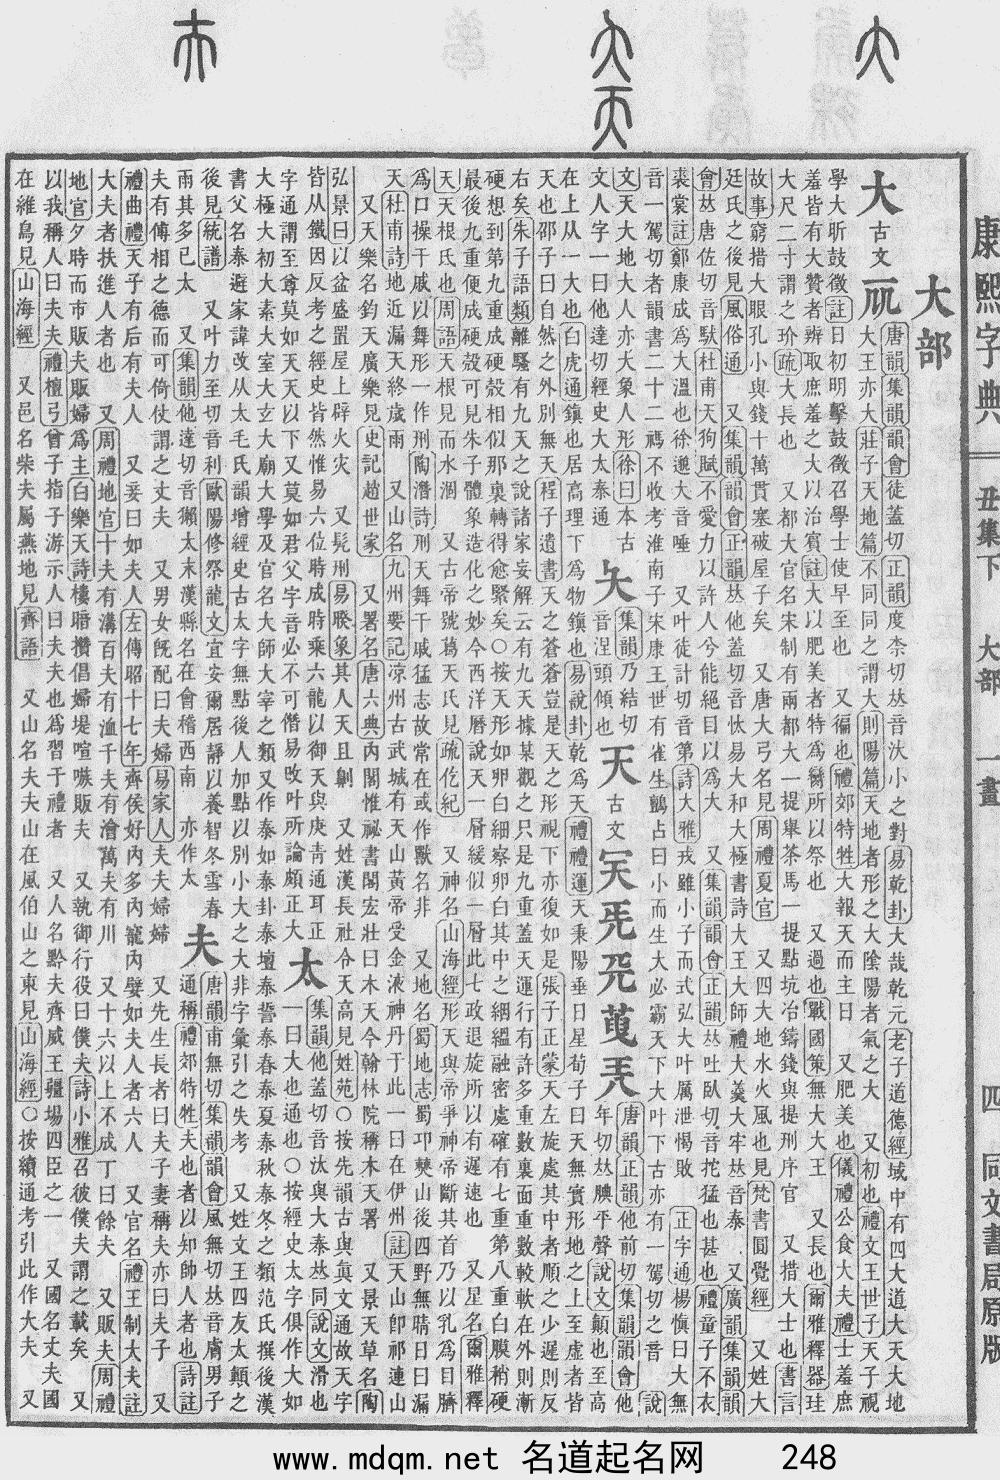 康熙字典 丑集下 大部 一畫 四 同文書局原版
大部
大 古文 唐韻集韻韻會徒蓋切正韻度柰切𠀤音汏小之對易乾卦大哉乾元老子道德經域中有四大道大天大地
大王亦大莊子天地篇不同同之謂大則陽篇天地者形之大陰陽者氣之大 又初也禮文王世子天子視
學大昕鼓徵註日初明擊鼓徵召學士使早至也 又徧也禮郊特牲大報天而主日 又肥美也儀禮公食大夫禮士羞庶
羞皆有大贊者辨取庶羞之大以治賓註大以肥美者特爲臠所以祭也 又過也戰國策無大大王 又長也爾雅釋器珪
大尺二寸謂之玠疏大長也 又都大官名宋制有兩都大一提舉茶馬一提點坑冶鑄錢與提刑序官 又措大士也書言
故事窮措大眼孔小與錢十萬貫塞破屋子矣 又唐大弓名見周禮夏官 又四大地水火風也見梵書圓覺經 又姓大
廷氏之後見風俗通 又集韻韻會正韻𠀤他蓋切音忲易大和大極書詩大王大師禮大羹大牢𠀤音泰 又廣韻集韻韻
會𠀤唐佐切音馱杜甫天狗賦不愛力以許人兮能絕目以爲大 又集韻韻會正韻𠀤吐臥切音拕猛也甚也禮童子不衣
裘裳註鄭康成爲大溫也徐邈大音唾 又叶徒計切音第詩大雅戎雖小子而式弘大叶厲泄愒敗 正字通楊慎曰大無
音一駕切者韻書二十二禡不收考淮南子宋康王世有雀生鸇占曰小而生大必霸天下大叶下古亦有一駕切之音 說
文天大地大人亦大象人形徐曰本古
文人字一曰他達切經史大太泰通
夨 集韻乃結切
音涅頭傾也
天 古文 唐韻正韻他前切集韻韻會他
年切𠀤腆平聲說文顚也至高
在上从一大也白虎通鎭也居高理下爲物鎭也易說卦乾爲天禮禮運天秉陽垂日星荀子曰天無實形地之上至虛者皆
天也邵子曰自然之外別無天程子遺書天之蒼蒼豈是天之形視下亦復如是張子正蒙天左旋處其中者順之少遲則反
右矣朱子語類離騷有九天之說諸家妄解云有九天據某觀之只是九重蓋天運行有許多重數裏面重數較軟在外則漸
硬想到第九重成硬殼相似那裏轉得愈緊矣○按天形如卵白細察卵白其中之絪縕融密處確有七重第八重白膜稍硬
最後九重便成硬殼可見朱子體象造化之妙今西洋曆說天一層緩似一層此七政退旋所以有遲速也 又星名爾雅釋
天天根氏也周語天根見而水涸 又古帝號葛天氏見疏仡紀 又神名山海經形天與帝爭神帝斷其首乃以乳爲目臍
爲口操干戚以舞形一作刑陶潛詩刑天舞干戚猛志故常在或作獸名非 又地名蜀地志蜀邛僰山後四野無晴日曰漏
天杜甫詩地近漏天終歲雨 又山名九州要記涼州古武城有天山黃帝受金液神丹于此一曰在伊州註天山卽祁連山
又天樂名鈞天廣樂見史記趙世家 又署名唐六典內閣惟祕書閣宏壯曰木天今翰林院稱木天署 又景天草名陶
弘景曰以盆盛置屋上辟火灾 又髡刑易睽象其人天且劓 又姓漢長社令天高見姓苑○按先韻古與眞文通故天字
皆从鐵因反考之經史皆然惟易六位時成時乘六龍以御天與庚靑通耳正
字通謂至尊莫如天天以下又莫如君父字音必不可僭易攺叶所論頗正大
太 集韻他蓋切音汰與大泰𠀤同說文滑也
一曰大也通也○按經史太字俱作大如
大極大初大素大室大玄大廟大學及官名大師大宰之類又作泰如泰卦泰壇泰誓泰春泰夏泰秋泰冬之類范氏撰後漢
書父名泰避家諱改从太毛氏韻增經史古太字無點後人加點以別小大之大非字彙引之失考 又姓文王四友太顚之
後見統譜 又叶力至切音利歐陽修祭龍文宜安爾居靜以養智冬雪春
雨其多已太 又集韻他達切音獺太末漢縣名在會稽西南 亦作太
夫 唐韻甫無切集韻韻會風無切𠀤音膚男子
通稱禮郊特牲夫也者以知帥人者也詩註
夫有傳相之德而可倚仗謂之丈夫 又男女旣配曰夫婦易家人夫夫婦婦 又先生長者曰夫子妻稱夫亦曰夫子 又
禮曲禮天子有后有夫人 又妾曰如夫人左傳昭十七年齊侯好內多內寵內嬖如夫人者六人 又官名禮王制大夫註
大夫者扶進人者也 又周禮地官十夫有溝百夫有洫千夫有澮萬夫有川 又十六以上不成丁曰餘夫 又販夫周禮
地官夕時而市販夫販婦爲主白樂天詩樓暗攢倡婦堤喧嗾販夫 又執御行役曰僕夫詩小雅召彼僕夫謂之載矣 又
以我稱人曰夫夫禮檀弓曾子指子游示人曰夫夫也爲習于禮者 又人名黔夫齊威王疆埸四臣之一 又國名丈夫國
在維鳥見山海經 又邑名柴夫屬燕地見齊語 又山名夫夫山在風伯山之東見山海經○按續通考引此作大夫 又
www.mdqm.net 名道起名网 248